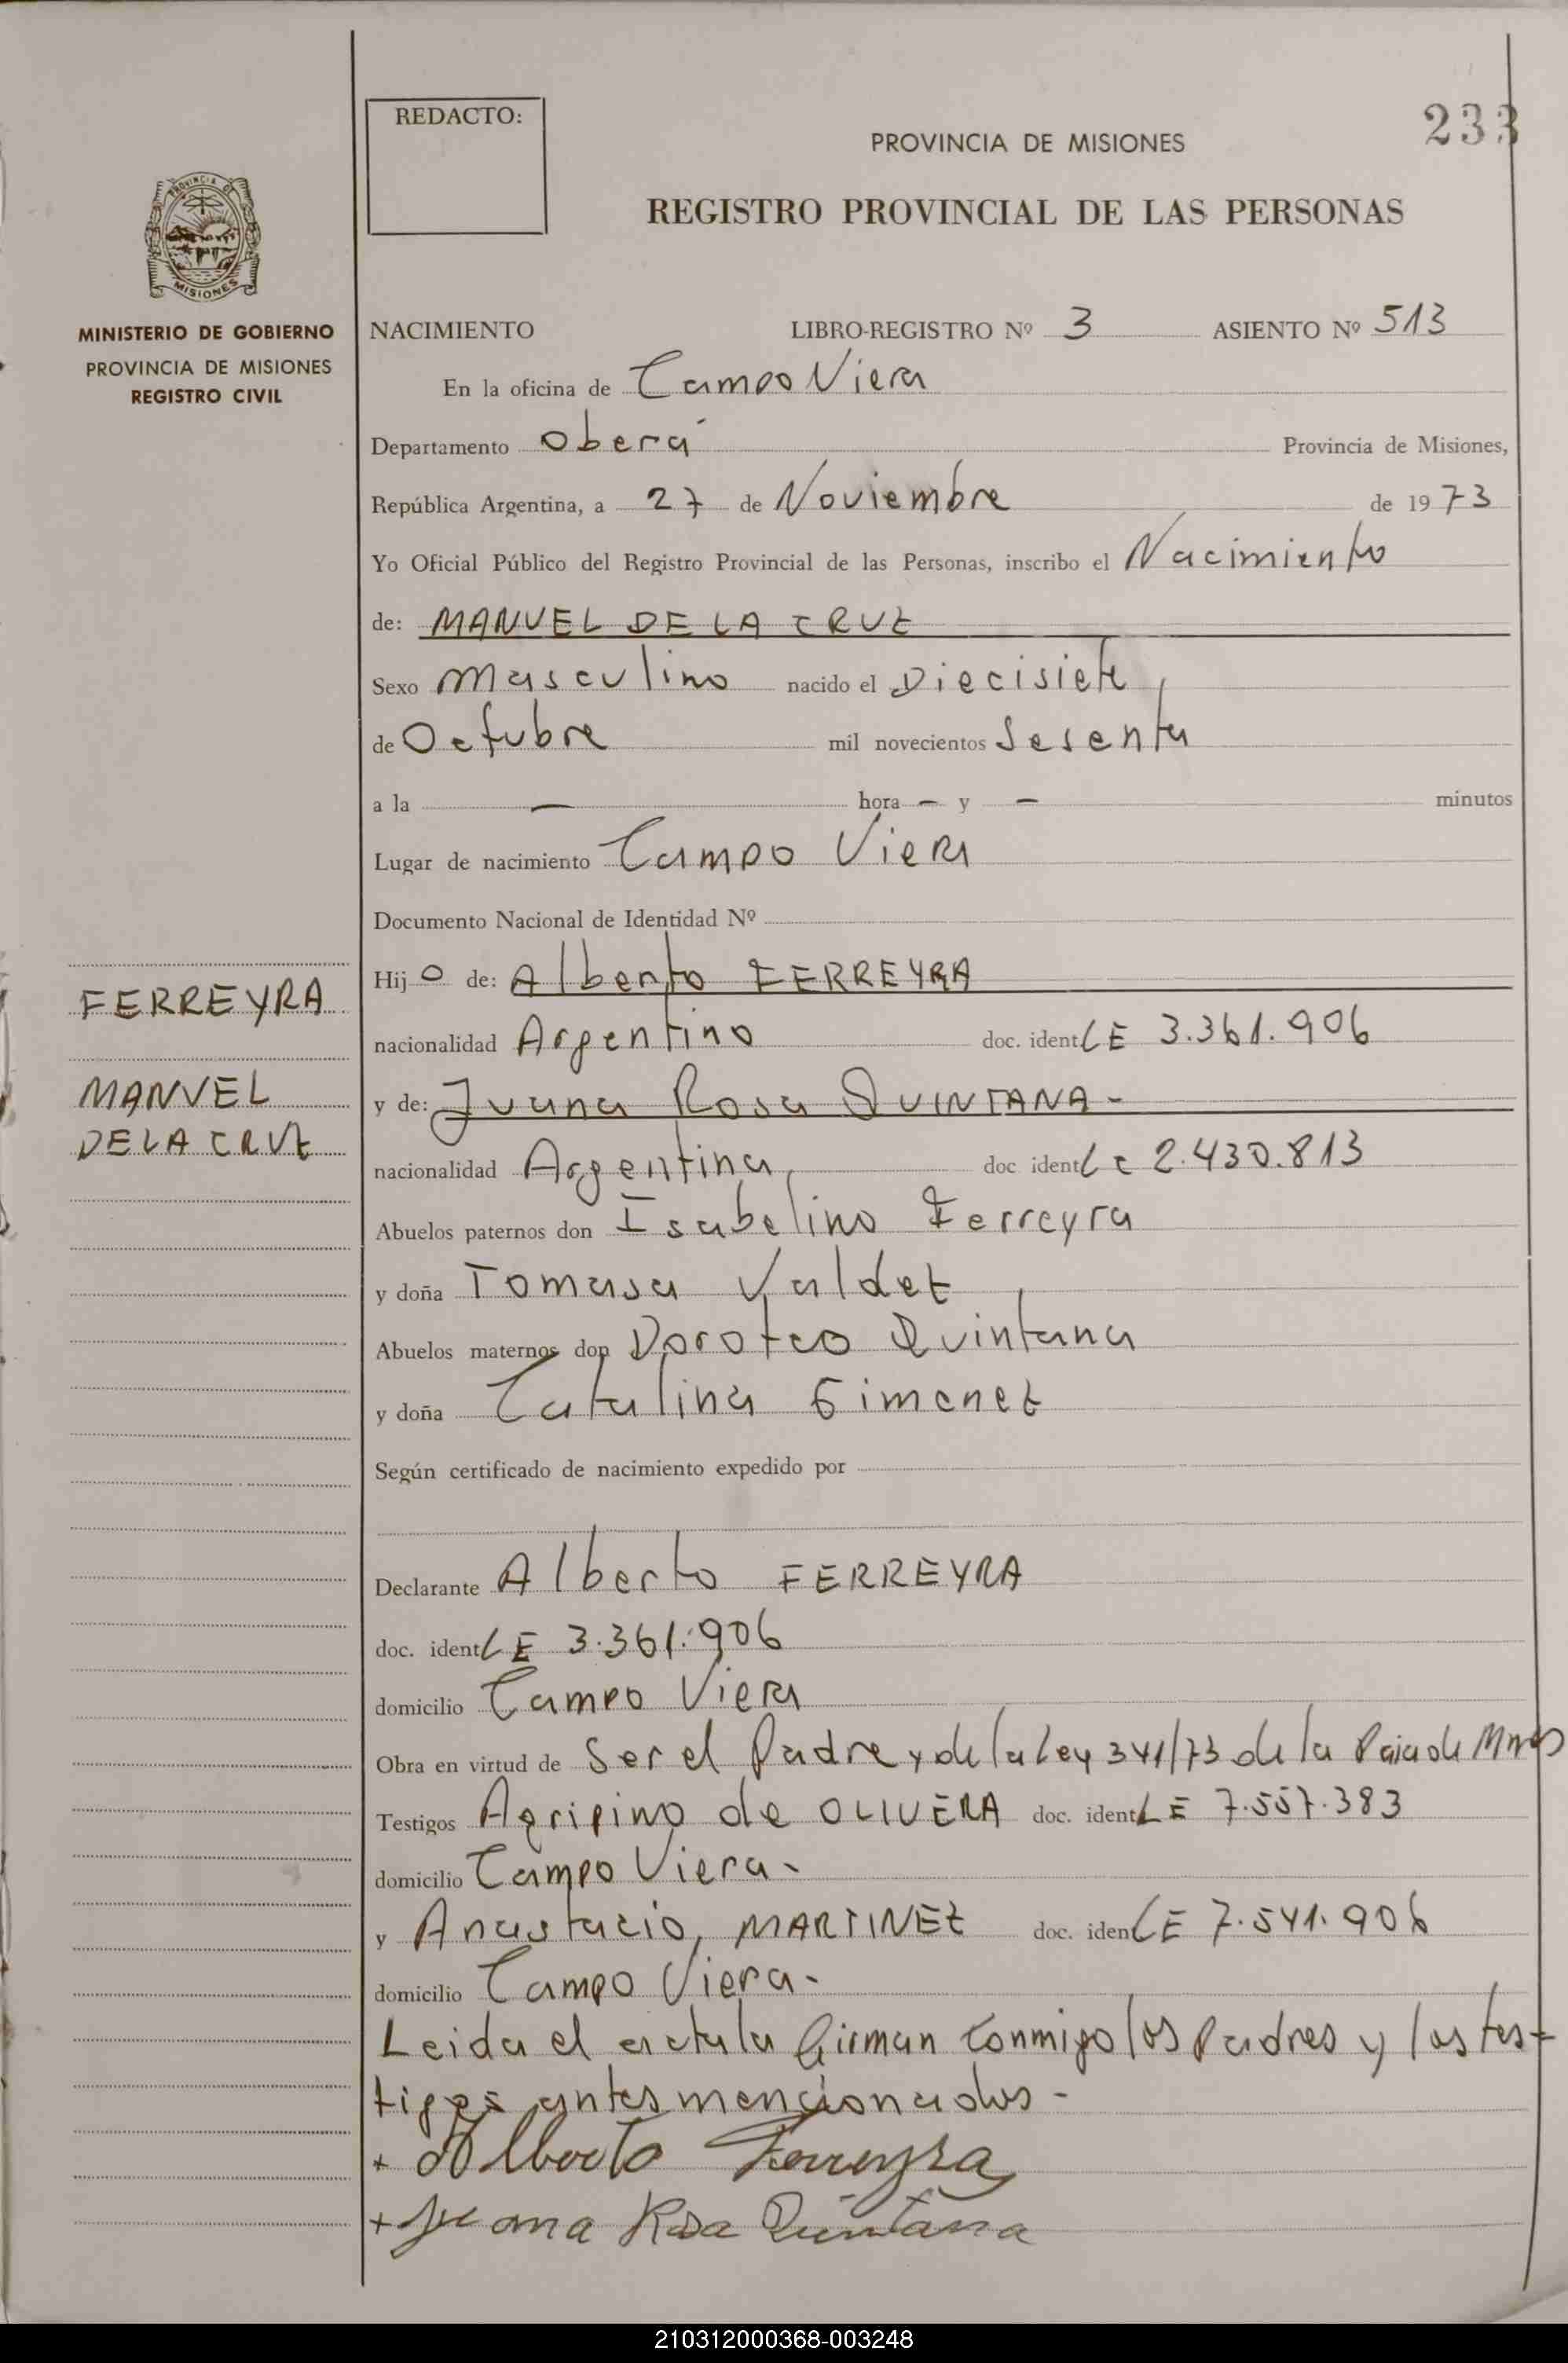 REDACTO:
233
PROVINCIA DE MISIONES
REGISTRO PROVINCIAL DE LAS PERSONAS
PROVINCIA DE
MISIONES
MINISTERIO DE GOBIERNO
PROVINCIA DE MISIONES
REGISTRO CIVIL
NACIMIENTO LIBRO-REGISTRO Nº 3 ASIENTO Nº 513
En la oficina de Campo Viera
Departamento Oberá Provincia de Misiones,
República Argentina, a 27 de Noviembre de 1973
Yo Oficial Público del Registro Provincial de las Personas, inscribo el Nacimiento
de: MANUEL DE LA CRUZ
Sexo Masculino nacido el Diecisiete
de Octubre mil novecientos Sesenta
a la — hora – y – minutos
Lugar de nacimiento Campo Viera
Documento Nacional de Identidad Nº
Hijo de: Alberto FERREYRA
nacionalidad Argentino doc. ident LE 3.361.906
y de: Juana Rosa QUINTANA -
nacionalidad Argentina doc ident LC 2.430.813
Abuelos paternos don Isabelino Ferreyra
y doña Tomasa Valdez
Abuelos maternos don Doroteo Quintana
y doña Catalina Gimenez
Según certificado de nacimiento expedido por
Declarante Alberto FERREYRA
doc. ident LE 3.361.906
domicilio Campo Viera
Obra en virtud de Ser el Padre y de la Ley 341/73 de la Pcia de Mnes
Testigos Agripino de OLIVERA doc. ident LE 7.557.383
domicilio Campo Viera -
y Anastacio, MARTINEZ doc. iden LE 7.541.906
domicilio Campo Viera -
Leida el acta la firman conmigo los Padres y los tes-
tigos antes mencionados -
+ Alberto Ferreyra
+ Juana Rosa Quintana
FERREYRA
MANUEL
DE LA CRUZ
210312000368-003248